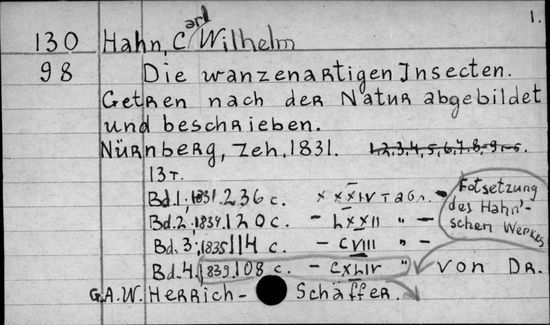 1.
130 Hahn, Carl Wilhelm
98 Die wanzenartigen Insecten.
Getren nach der Natur abgebildet
und beschrieben.
Nürnberg, Zeh, 1831. 1,2,3,4,5,6,7,8,9
13т.
Bd.1; 1831. 236 с. – XXXIV табл. –
Bd.2; 1834. 120 с. – LXXII " –
Bd.3; 1835 114 с. – CVIII " –
Bd.4. 1839. 108 с. – CXLIV "
Fotsetzung
des Hahn'-
schen Werkes
von Dr.
G.A.W. Herrich-Schäffer.